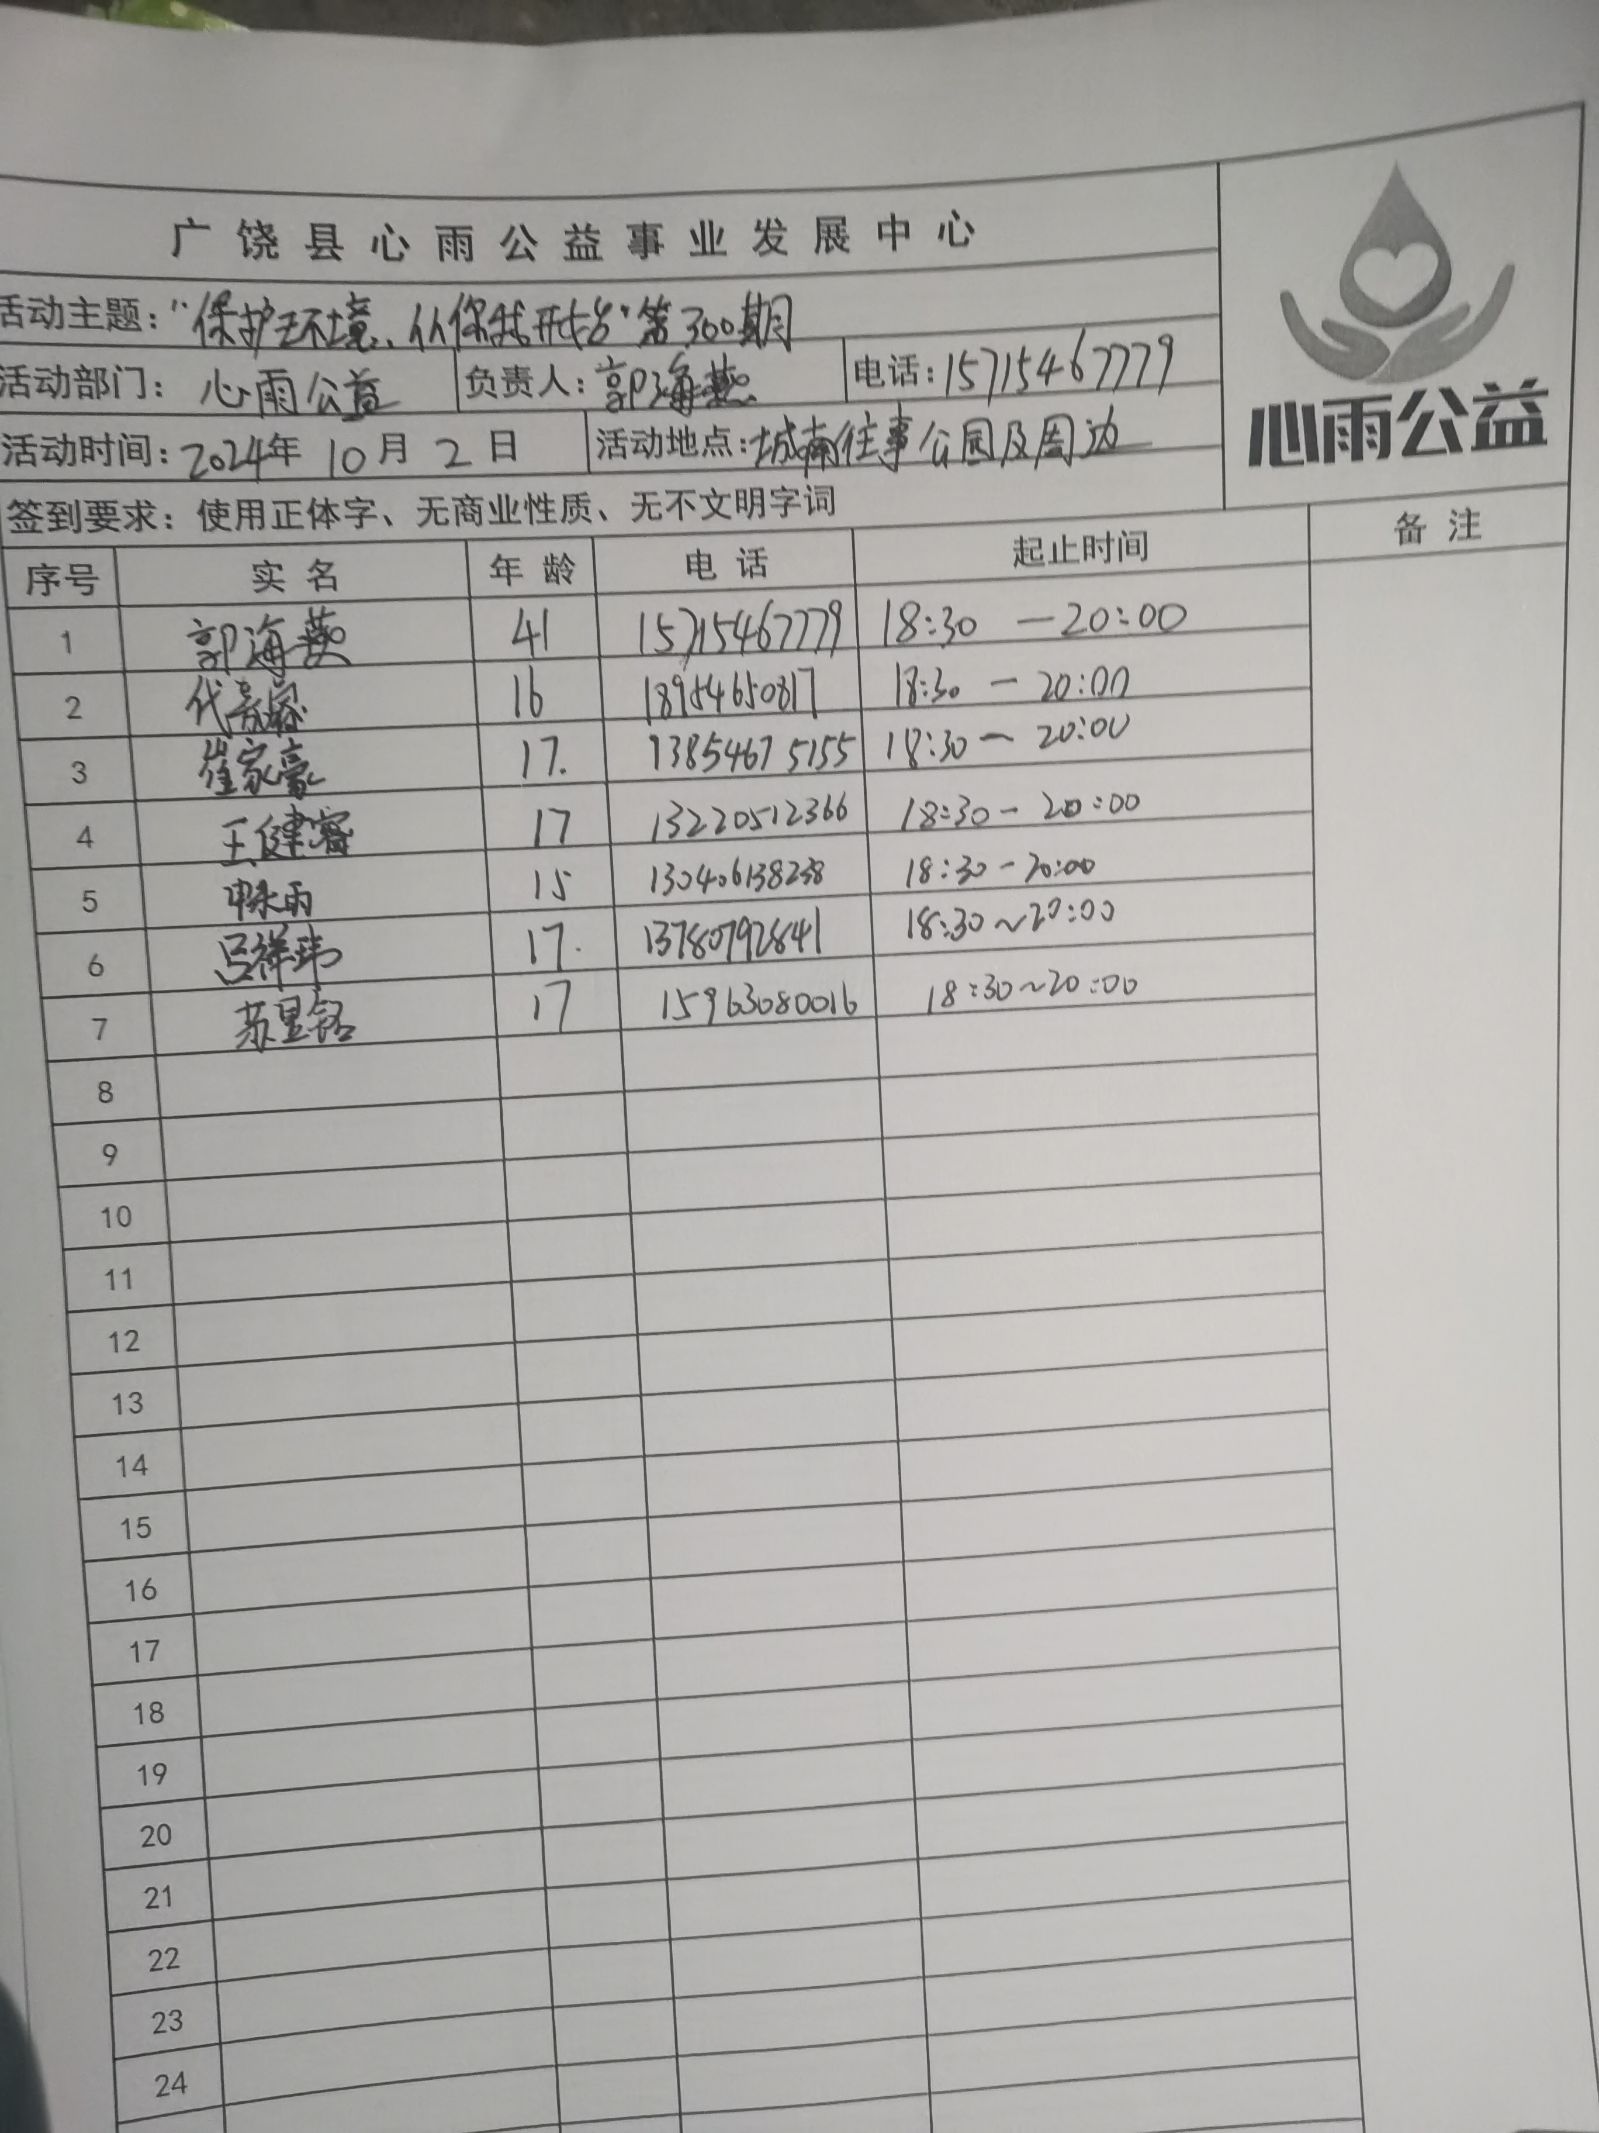 广饶县心雨公益事业发展中心
活动主题："保护环境、从你我开始"第300期
活动部门：心雨公益 负责人：郭海燕 电话：15715467779
活动时间：2024年 10月 2日 活动地点：城南往事公园及周边
心雨公益
签到要求：使用正体字、无商业性质、无不文明字词
序号 实名 年龄 电话 起止时间 备注
1 郭海燕 41 15715467779 18:30 — 20:00
2 代 16 18954650817 18:30 — 20:00
3 崔家豪 17. 13854675155 18:30 — 20:00
4 王健睿 17 13220512366 18:30 — 20:00
5 雨 15 18:30 - 20:00
6 吕祥玮 17. 13780792841 18:30 ~ 20:00
7 苏星铭 17 15963080016 18:30 ~ 20:00
8
9
10
11
12
13
14
15
16
17
18
19
20
21
22
23
24